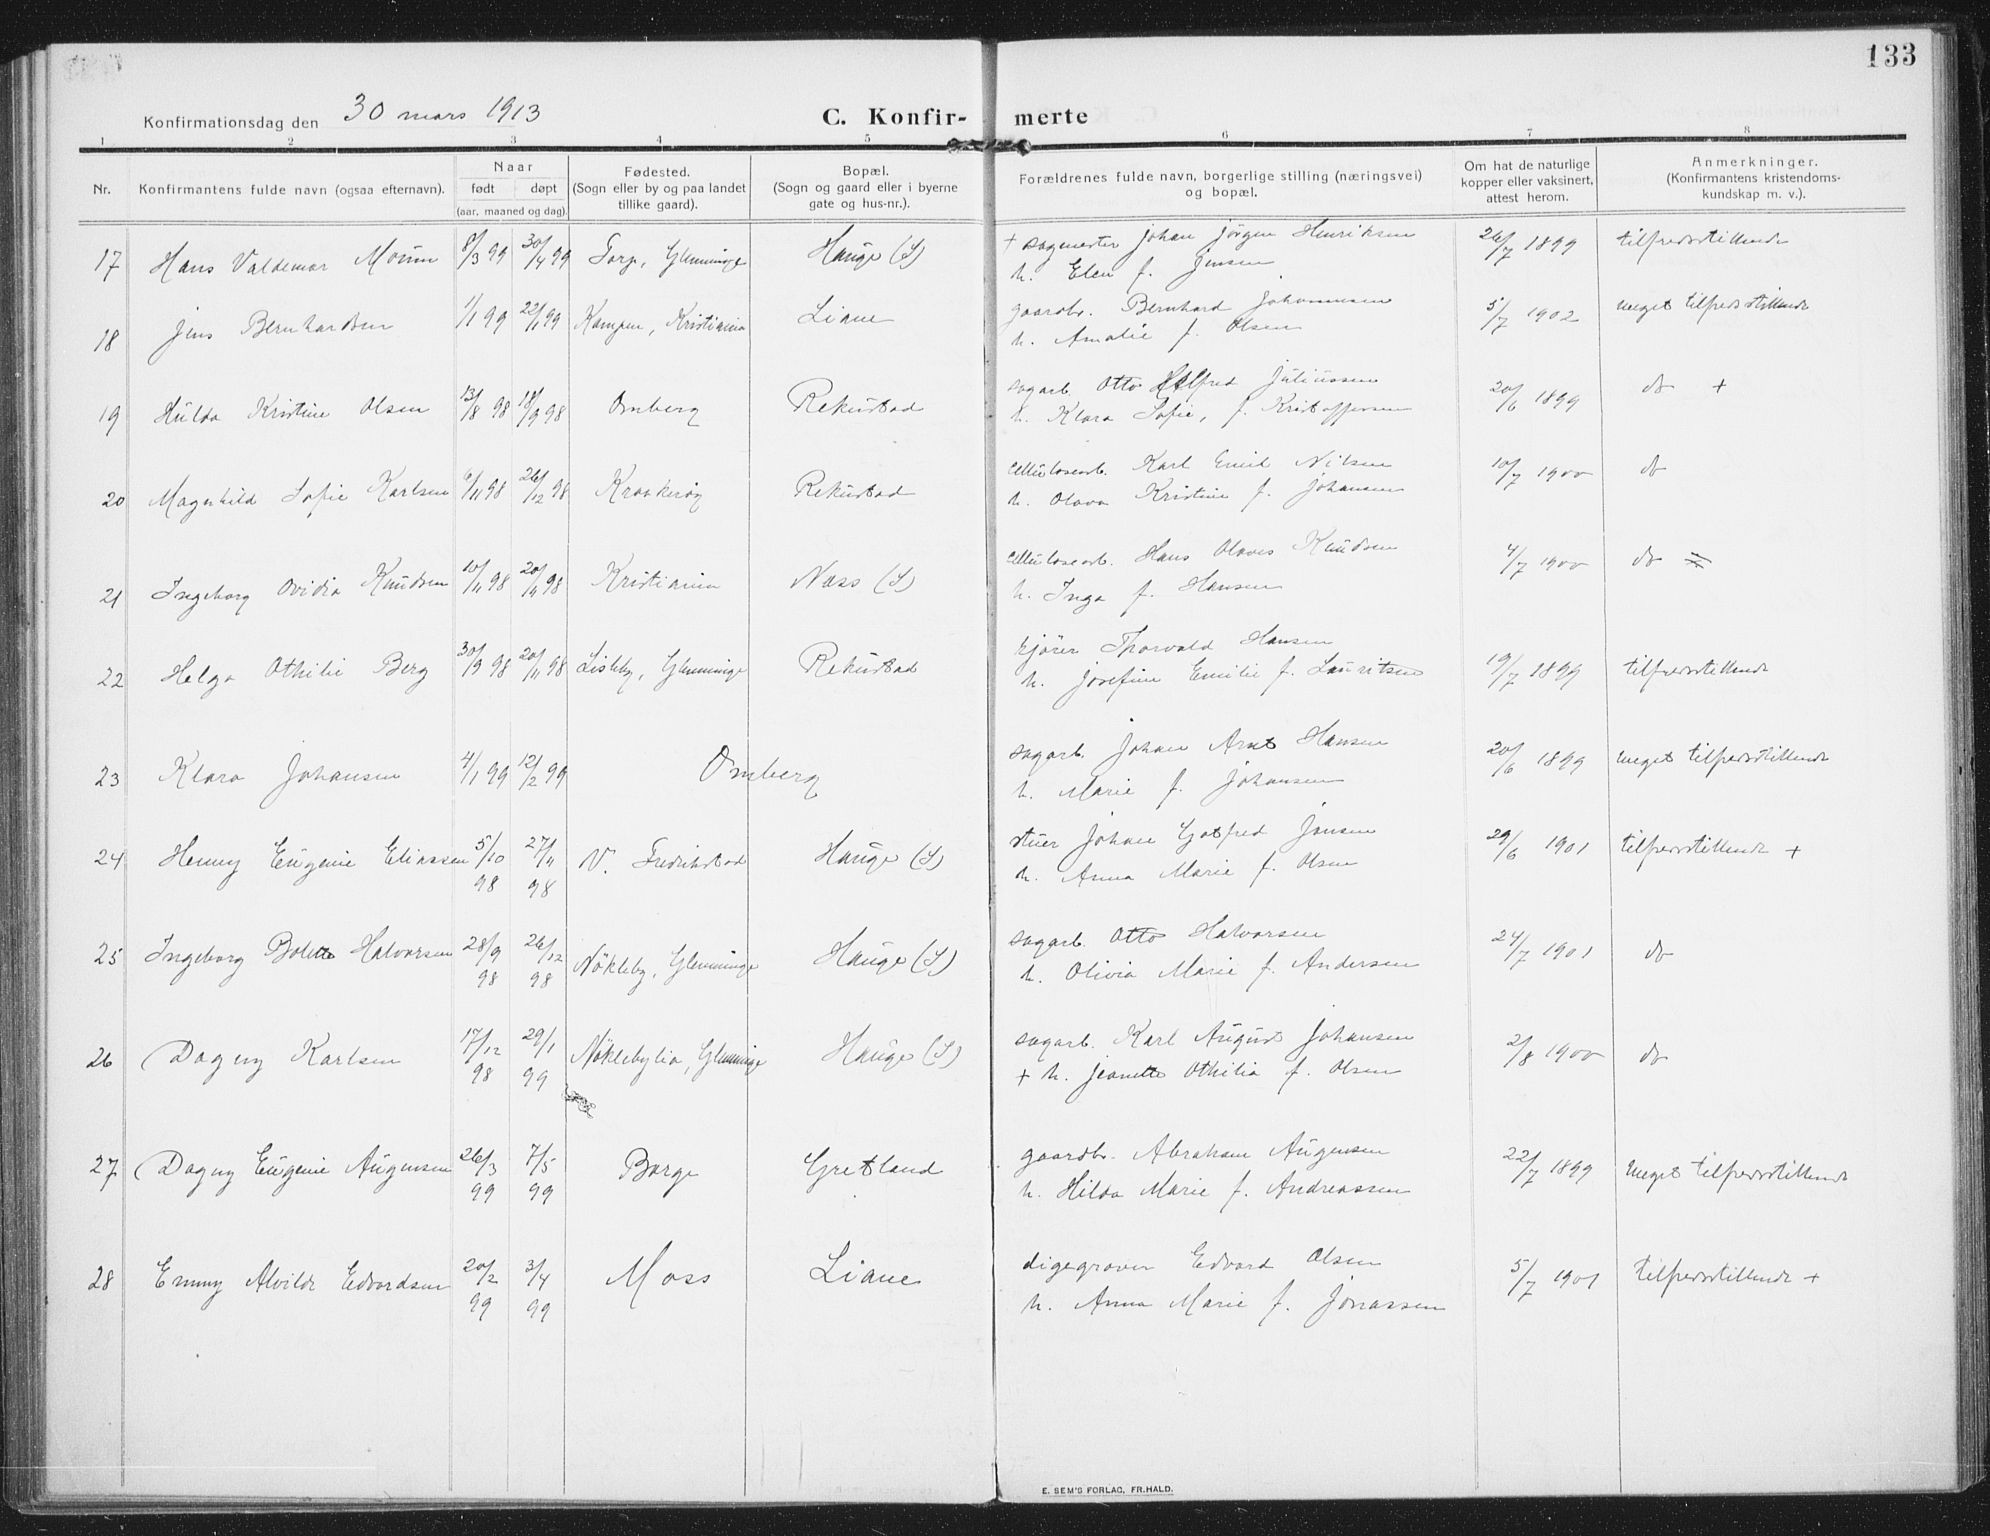 133
Konfirmationsdag den 30 mars 1913
C. Konfir- merte
1 2 3 4 5 6 7 8
Nr. Konfirmantens fulde navn (ogsaa efternavn). Naar født døpt (aar, maaned og dag). Fødested. (Sogn eller by og paa landet tillike gaard). Bopæl. (Sogn og gaard eller i byerne gate og hus-nr.). Forældrenes fulde navn, borgerlige stilling (næringsvei) og bopæl. Om hat de naturlige kopper eller vaksinert, attest herom. Anmerkninger. (Konfirmantens kristendoms- kundskap m. v.).
17 Hans Valdemar Moum 8/3 99 30/4 99 Torp, Glemminge Hauge (S) + sagmester Johan Jørgen Henriksen 26/7 1899 tilfredsstillende
h. Elen f. Jensen
18 Jens Bernhardsen 1/1 99 22/1 99 Kampen, Kristiania Liane gaardbr. Bernhard Johannesen 5/7 1902 meget tilfredsstillende
h. Amalie f. Olsen
19 Hulda Kristine Olsen 13/8 98 18/9 98 Omberg Rekustad sagarb. Otto Juliussen 20/6 1899 do +
h. Klara Sofie, f. Kristoffersen
20 Magnhild Sofie Karlsen 6/11 98 26/12 98 Kraakerøy Rekustad cellulosearb. Karl Emil Nilsen 10/7 1900 do
h. Olava Kristine f. Johansen
21 Ingeborg Ovidia Knudsen 10/11 98 20/11 98 Kristiania Næss (S) cellulosearb. Hans Olaves Knudsen 4/7 1900 do
h. Inga f. Hansen
22 Helga Othilie Berg 30/9 98 20/11 98 Lisleby, Glemminge Rekustad kjører Thorvald Hansen 19/7 1899 tilfredsstillende
h. Josefine Emilie f. Lauritsen
23 Klara Johansen 4/1 99 12/2 99 Omberg sagarb. Johan Arnt Hansen 20/6 1899 meget tilfredsstillende
h. Marie f. Johansen
24 Henny Eugenie Eliassen 5/10 98 27/11 98 V. Fredrikstad Hauge (S) stuer Johan Gotfred Jensen 29/6 1901 tilfredsstillende +
h. Anna Marie f. Olsen
25 Ingeborg Bolette Halvorsen 28/9 98 26/12 98 Nøkleby, Glemminge Hauge (S) sagarb. Otto Halvorsen 24/7 1901 do
h. Olivia Marie f. Andersen
26 Dagny Karlsen 17/12 98 29/1 99 Nøklebylia, Glemminge Hauge (S) sagarb. Karl August Johansen 2/8 1900 do
+ h. Jeanette Othilia f. Olsen
27 Dagny Eugenie Augensen 26/3 99 7/5 99 Borge Gretland gaardbr. Abraham Augensen 22/7 1899 meget tilfredsstillende
h. Hilda Marie f. Andreassen
28 Emmy Alvilde Edvardsen 20/2 99 3/4 99 Moss Liane digegraver Edvard Olsen 5/7 1901 tilfredsstillende +
h. Anna Marie f. Jonassen
E. SEM'S FORLAG, FR.HALD.